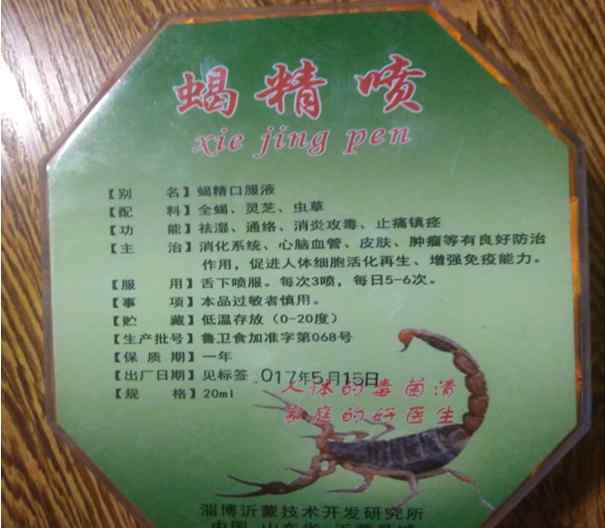 蝎精喷
xie jing pen
【别　　名】蝎精口服液
【配　　料】全蝎、灵芝、虫草
【功　　能】祛湿、通络、消炎攻毒、止痛镇痉
【主　　治】消化系统、心脑血管、皮肤、肿瘤等有良好防治
作用，促进人体细胞活化再生、增强免疫能力。
【服　　用】舌下喷服。每次3喷，每日5-6次。
【事　　项】本品过敏者慎用。
【贮　　藏】低温存放（0-20度）
【生产批号】鲁卫食加准字第068号
【保 质 期】一年
【出厂日期】见标签 017年5月15日
【规　　格】20ml
人体的毒菌清
家庭的好医生
淄博沂蒙技术开发研究所
中国 山东省